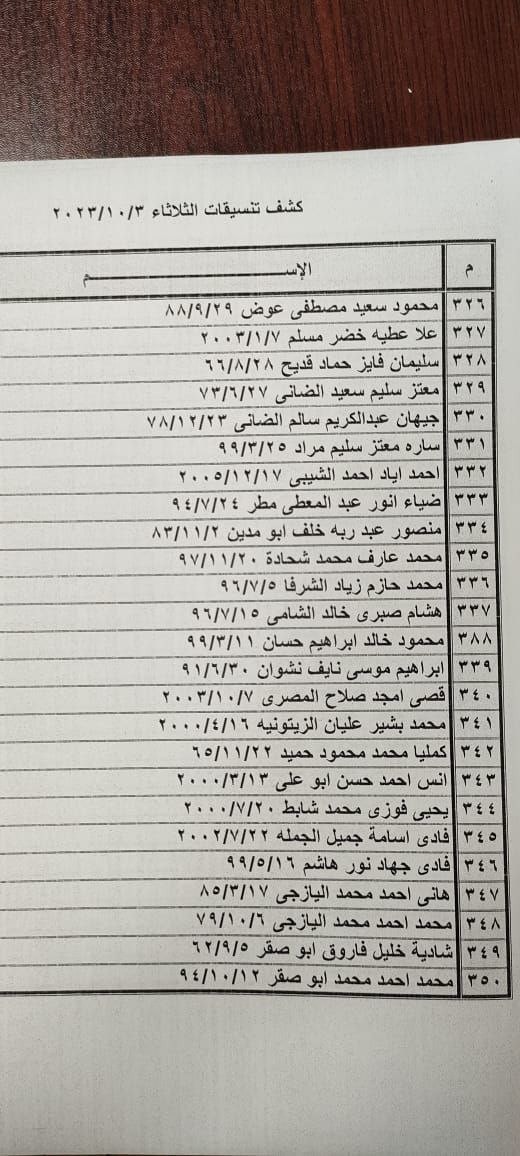 كشف تنسيقات الثلاثاء ٢٠٢٣/١٠/٣
م الإســـــــــــــــم
٣٢٦ محمود سعيد مصطفى عوض ٨٨/٩/٢٩
٣٢٧ علا عطيه خضر مسلم ٢٠٠٣/١/٧
٣٢٨ سليمان فايز حماد قديح ٦٦/٨/٢٨
٣٢٩ معتز سليم سعيد الضانى ٧٣/٦/٢٧
٣٣٠ جيهان عبدالكريم سالم الضانى ٧٨/١٢/٢٣
٣٣١ ساره معتز سليم مراد ٩٩/٣/٢٥
٣٣٢ احمد اياد احمد الشيبى ٢٠٠٥/١٢/١٧
٣٣٣ ضياء انور عبد المعطى مطر ٩٤/٧/٢٤
٣٣٤ منصور عبد ربه خلف ابو مدين ٨٣/١١/٢
٣٣٥ محمد عارف محمد شحادة ٩٧/١١/٢٠
٣٣٦ محمد حازم زياد الشرفا ٩٦/٧/٥
٣٣٧ هشام صبرى خالد الشامى ٩٦/٧/١٥
٣٨٨ محمود خالد ابراهيم حسان ٩٩/٣/١١
٣٣٩ ابراهيم موسى نايف نشوان ٩١/٦/٣٠
٣٤٠ قصى امجد صلاح المصرى ٢٠٠٣/١٠/٧
٣٤١ محمد بشير عليان الزيتونيه ٢٠٠٠/٤/١٦
٣٤٢ كمليا محمد محمود حميد ٦٥/١١/٢٢
٣٤٣ انس احمد حسن ابو على ٢٠٠٠/٣/١٣
٣٤٤ يحيى فوزى محمد شابط ٢٠٠٠/٧/٢٠
٣٤٥ فادى اسامة جميل الجمله ٢٠٠٢/٧/٢٢
٣٤٦ فادى جهاد نور هاشم ٩٩/٥/١٦
٣٤٧ هانى احمد محمد اليازجى ٨٥/٣/١٧
٣٤٨ محمد احمد محمد اليازجى ٧٩/١٠/٦
٣٤٩ شادية خليل فاروق ابو صقر ٦٢/٩/٥
٣٥٠ محمد احمد محمد ابو صقر ٩٤/١٠/١٢